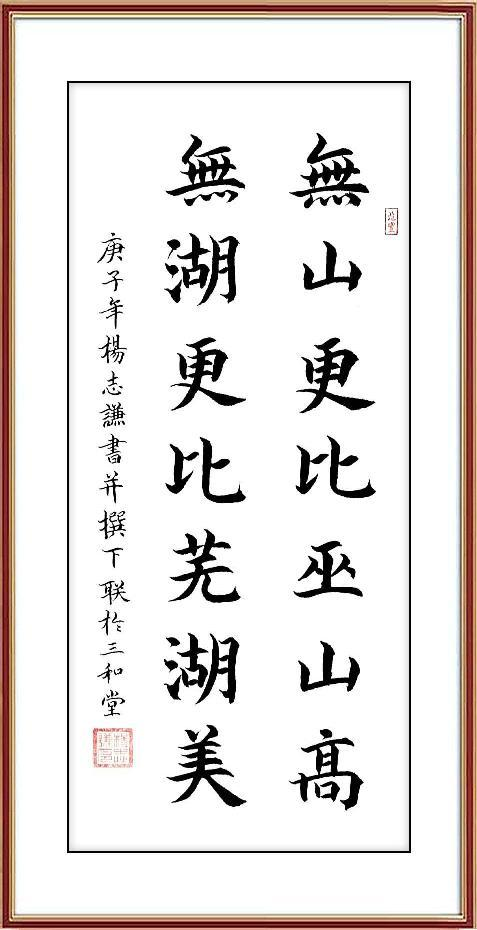 無山更比巫山高
無湖更比芜湖美
庚子年楊志謙書并撰下联於三和堂